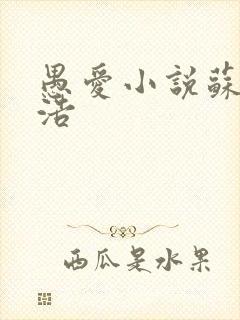 愚愛小說蘇
活
西瓜是水果